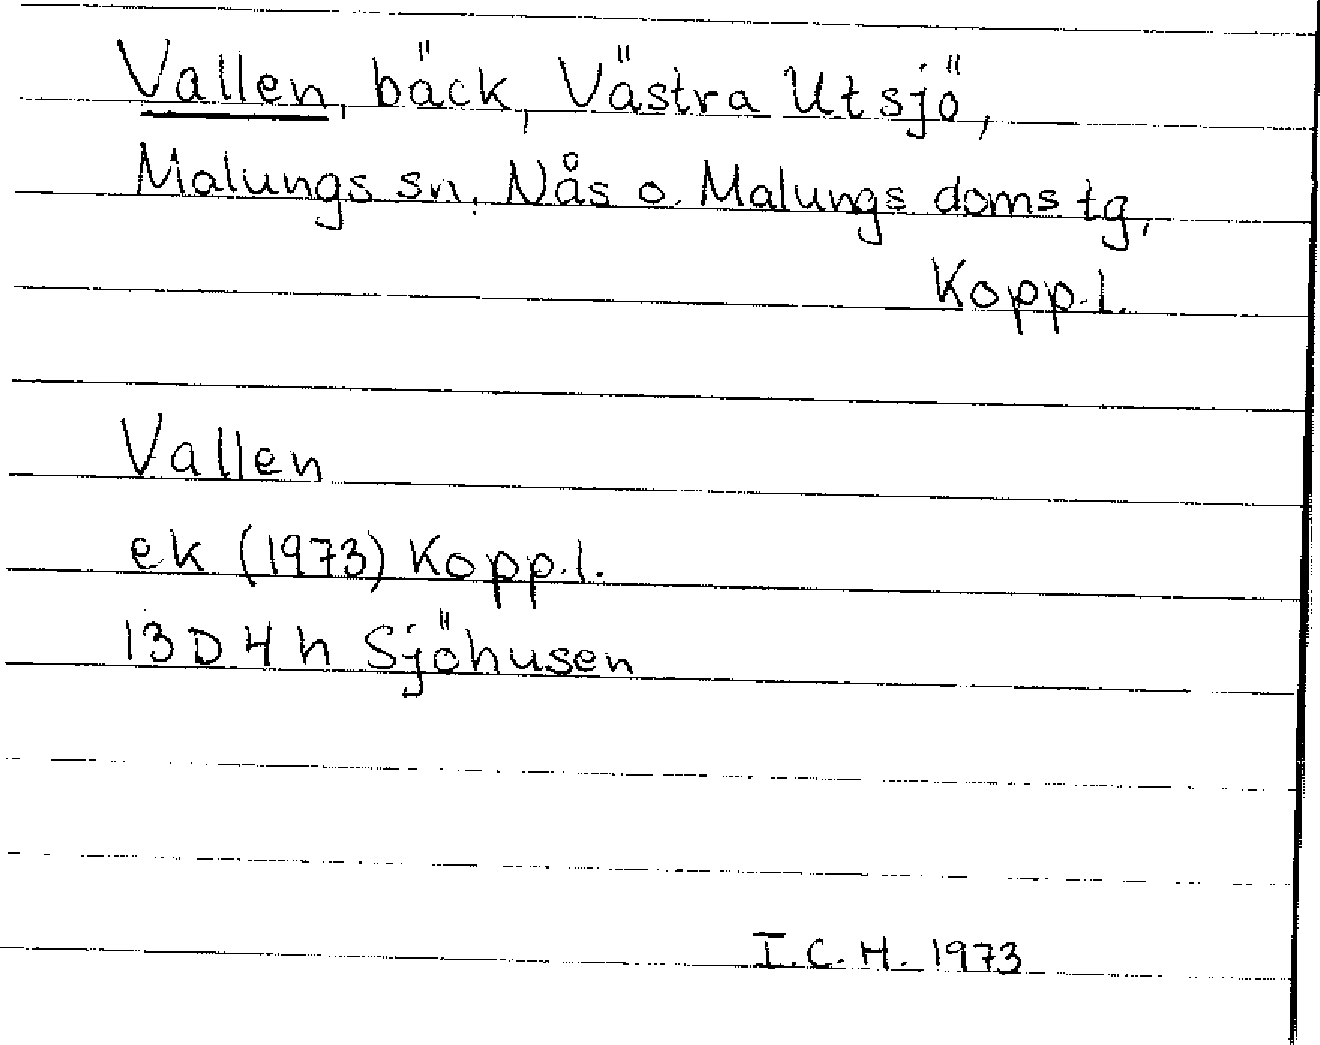 Vallen, bäck, Västra Utsjö,
Malungs sn, Nås o. Malungs domstg,
Kopp.l.
Vallen
ek (1973) Kopp.l.
13D4h Sjöhusen
I.C.H. 1973